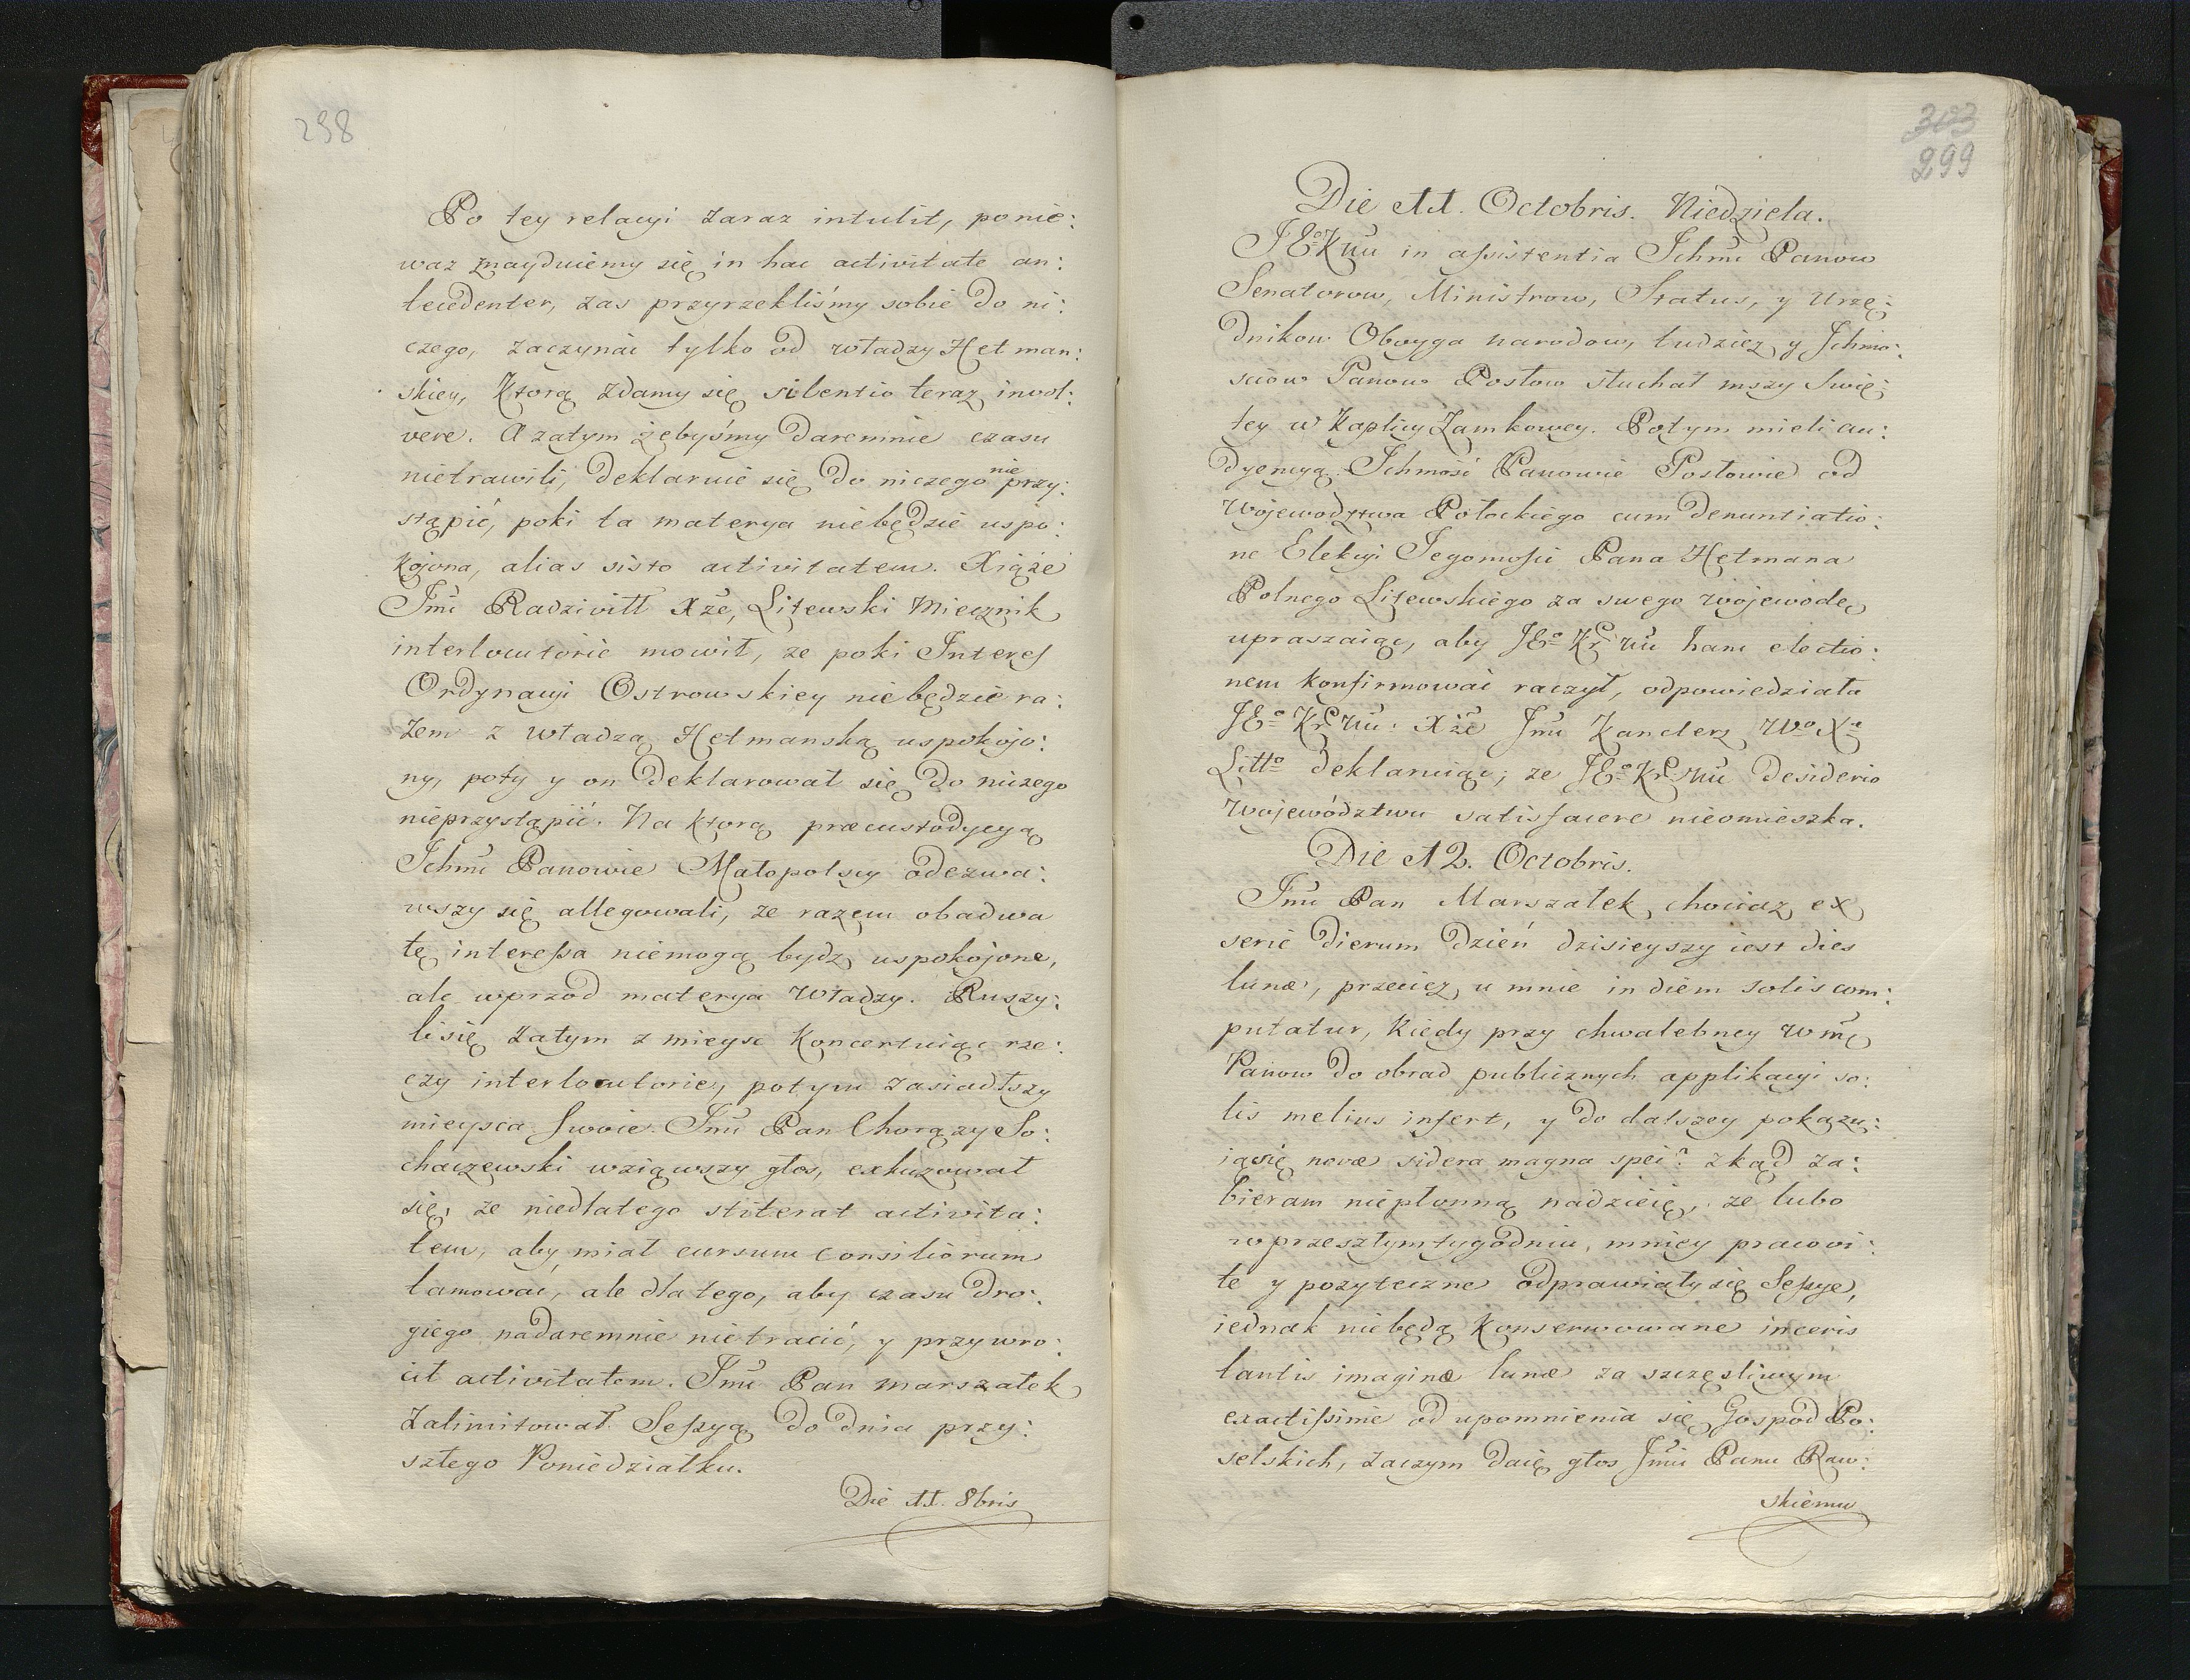 298
Po tey relacyi zaraz intulit, ponie:
waz znayduiemy się in hac activitate an:
tecedenter, zas przyrzekliśmy sobie do ni:
czego, zaczynać tylko od władzy Hetman:
skiey, Ktorą zdamy się silentio teraz invol:
vere. A zatym żebyśmy daremnie czasu
nietrawili, deklaruie się do niczego nie przy:
stąpić, poki ta materya niebędzie uspo:
kojona, alias sisto activitatem. Xiąże
Jmć Radziwiłł Xże, Litewski Miecznik
interlocutorie mowił, ze poki Interes
Ordynacyi Ostrowskiey niebędzie ra:
zem z władzą Hetmanską uspokojo:
ny, poty y on deklarował się do niczego
nieprzystąpić. Na ktorą præcustodycyą
Ichmć Panowie Małopolscy odezwa:
wszy się allegowali, ze razem obadwa
te interessa niemogą bydz uspokojone,
ale wprzod materya Władzy. Ruszy:
li się zatym z mieysc Koncertuiąc rze:
czy interlocutorie, potym zasiadłszy
mieysca swoie. Jmć Pan Chorązy So:
chaczewski wziąwszy głos, exkuzował
się, ze niedlatego stiterat activita:
tem, aby miał cursum consiliorum
tamować, ale dlatego, aby czasu dro:
giego nadaremnie nietracić, y przywro:
cił activitatem. Jmć Pan Marszałek
Zalimitował Sessyą do dnia przy:
szłego Poniedziałku.
Die 11. 8bris
303
299
Die 11. Octobris. Niedziela.
JEº Kmć in assistentia Ichmć Panow
Senatorow, Ministrow, Status, y Urzę:
dnikow Oboyga narodow, tudziez y Ichmo:
sciow Panow Posłow słuchał mszy Swię:
tey w Kaplicy Zamkowey. Potym mieli au:
dyencyą Ichmość Panowie Posłowie od
Wojewodztwa Połockiego cum denuntiatio:
ne Elekcyi Jegomości Pana Hetmana
Polnego Litewskiego za swego Wojewodę
upraszaiąc, aby JEº Kr Mć hanc electio:
nem konfirmować raczył, odpowiedziała
JEº Kr Mć. Xże Jmć Kanclerz Wº Xª
Littº deklaruiąc, ze JEº Kr Mć desiderio
Województwu satisfacere nieomieszka.
Die 12. Octobris.
Jmć Pan Marszałek, chociaz ex
serie dierum dzień dzisieyszy iest dies
lunæ, przeciez u mnie in diem solis com:
putatur, kiedy przy chwalebney Wmć
Panow do obrad publicznych applikacyi so:
lis melius infert, y do dalszey pokazu:
iącsię novæ sidera magna spei? zkąd za:
bieram niepłonną nadzieię, ze lubo
w przeszłym tygodniu, mniey prawowi:
te y pozyteczne odprawiały się Sessye,
iednak niebędą Konserwowane in ceris
tantis imaginæ lunæ za szczęsliwym
exactissime od upomnienia się Gospod Po:
selskich, zaczym daię głos Jmć Panu Raw:
skiemu